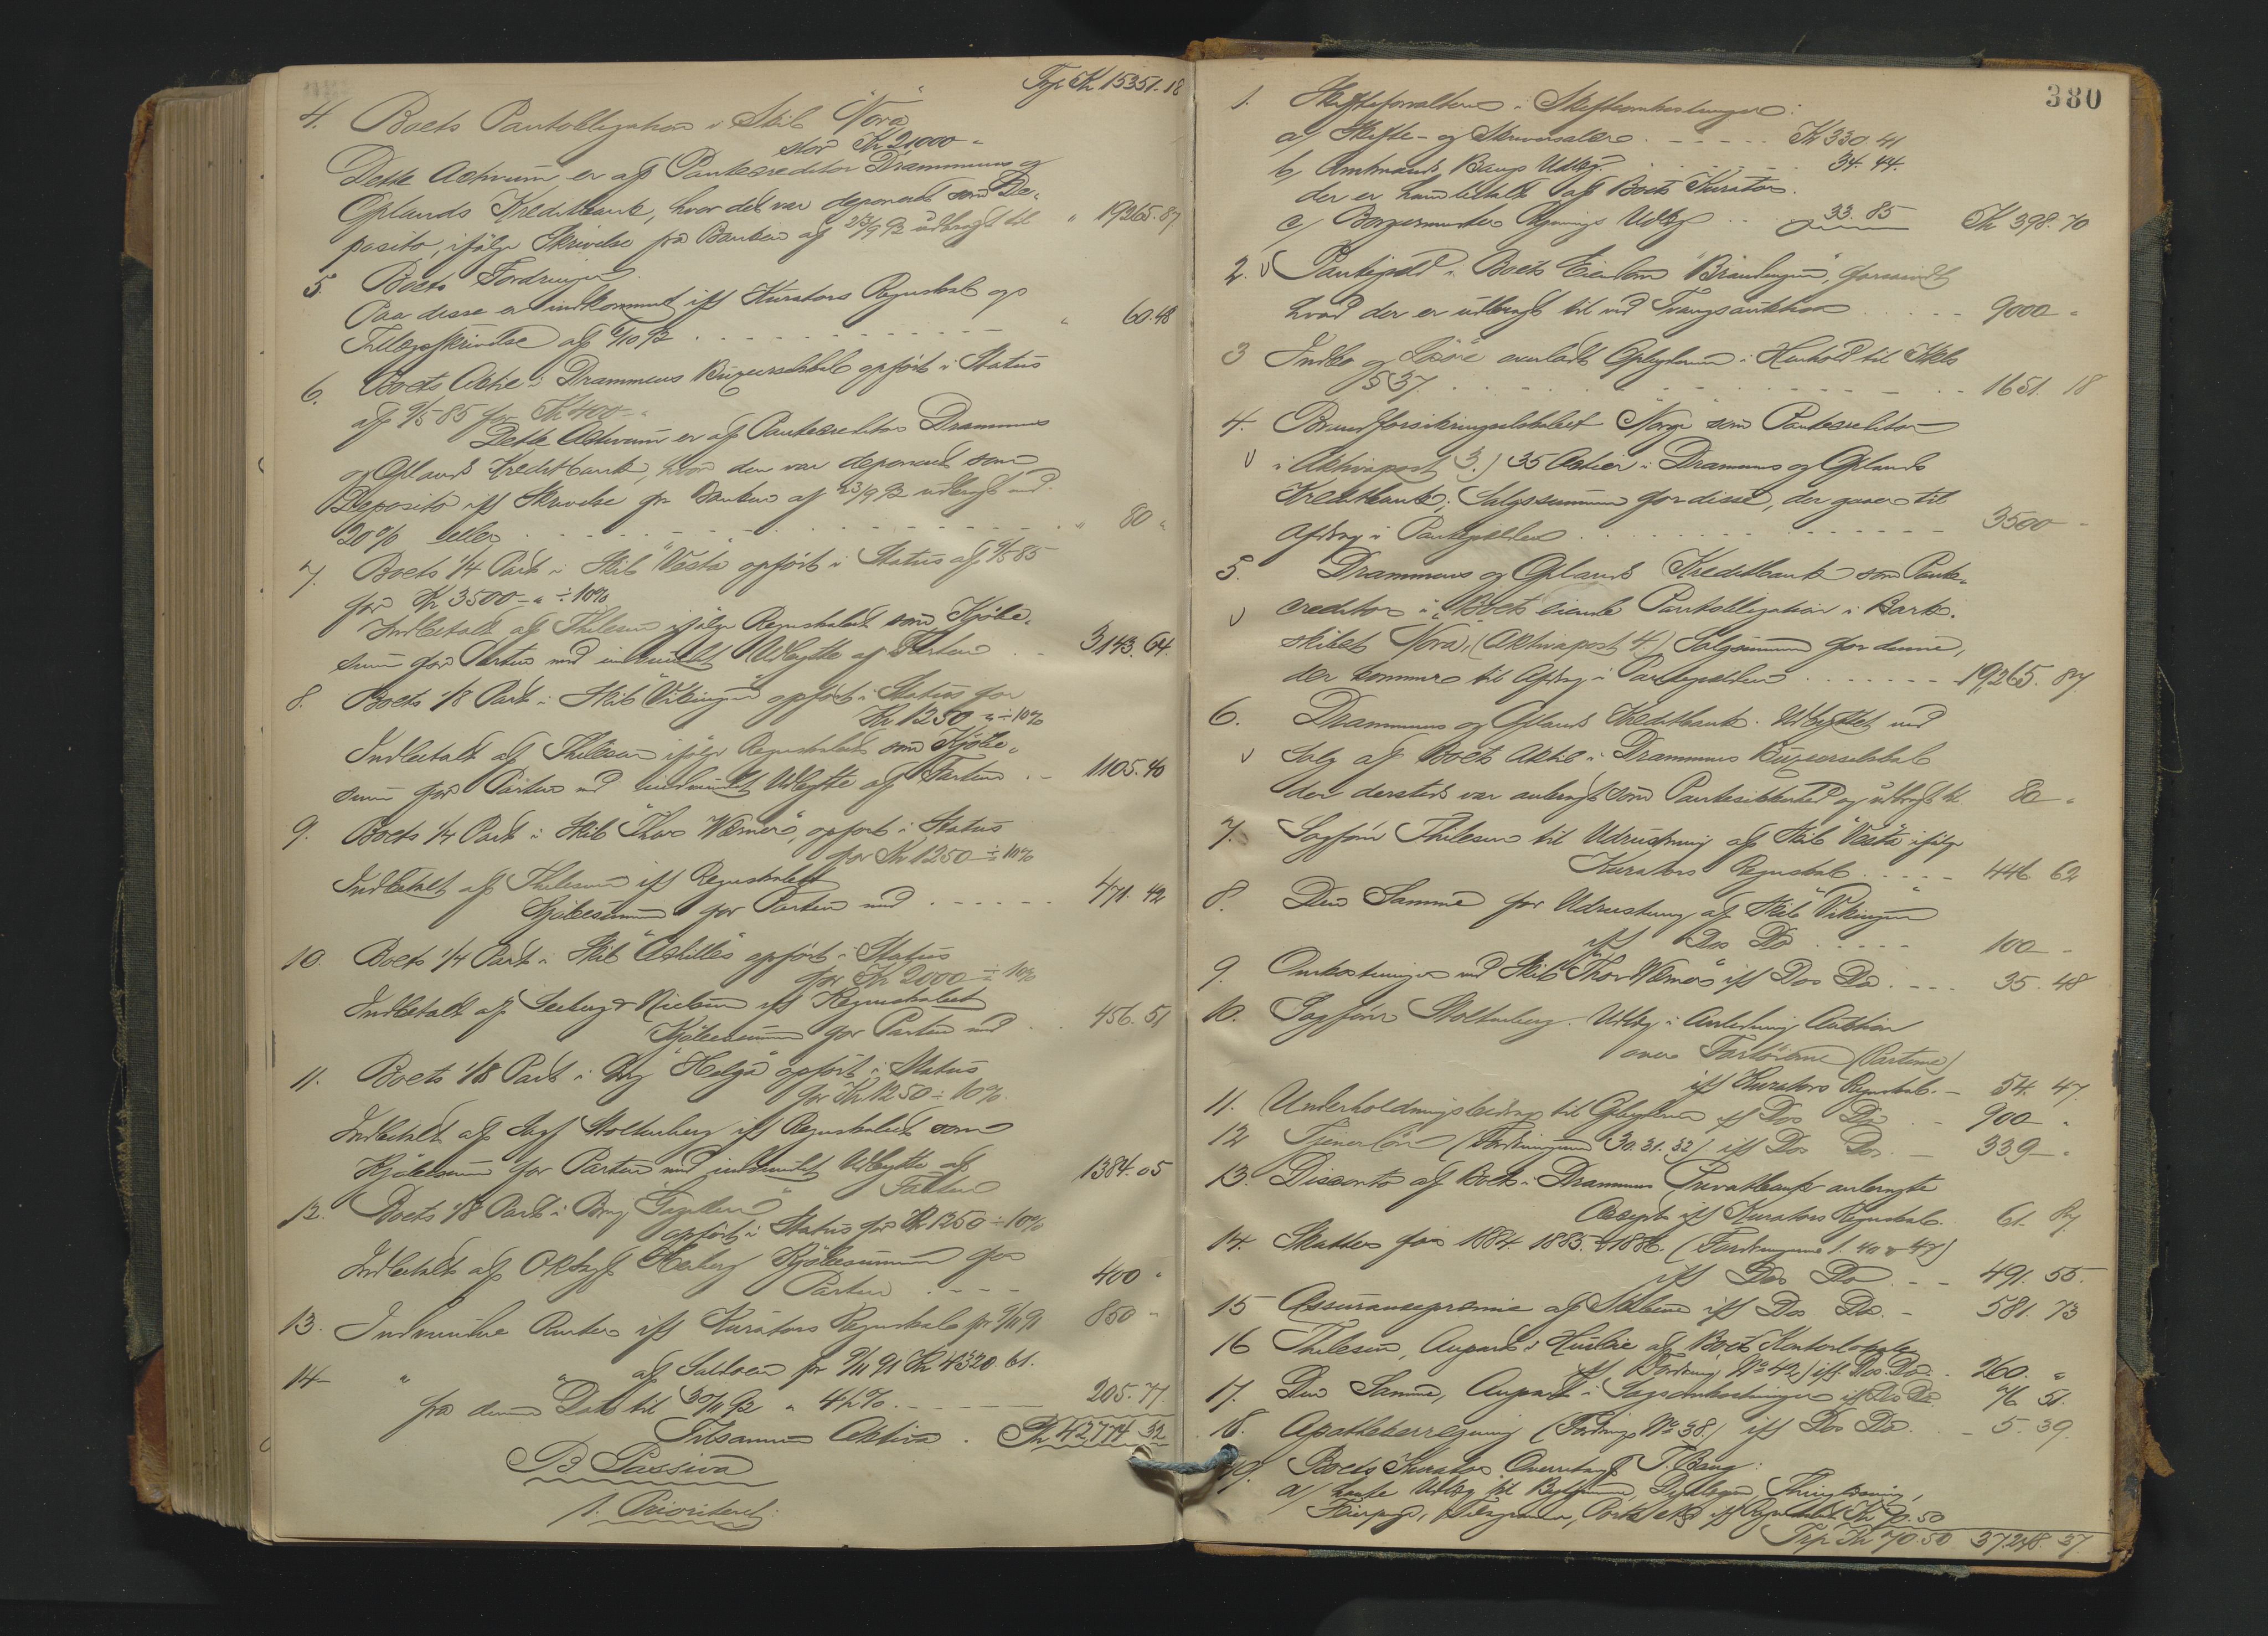 Trp Kr 15351.18
4. Boets Pantobligation i Skib "Nora"
stor Kr 21000 "
Dette Activum er af Pantecreditor Drammens og
Oplands Kreditbank, hvor det var deponeret som De-
posito, ifølge Skrivelse fra Banken af 23/9 92 udbragt til " 19265.87
5. Boets Fordringer.
Paa disse er indkommet iff Kurators Regnskab og
Tillægsskrivelse af 4/10 92 . . . " 60.48
6. Boets Actie i Drammens Bugserselskab opført i Status
af 9/5 85 for Kr. 400 - "
Dette Activum er af Pantecreditor Drammens
og Oplands Kreditbank, hvor den var deponeret som
Deposito iff Skrivelse fra Banken af 23/9 92 udbragt med
20% eller . . . " 80 "
7. Boets 1/4 Part i Skib "Vesta" opført i Status af 9/5 85
for Kr 3500 - " ÷ 10%
Indbetalt af Thilesen ifølge Regnskabet som Kjøbe-
sum for Parten med indvundet Udbytte af Farten . . - 3143.64.
8. Boets 1/8 Part i Skib "Vikingen" opført i Status for
Kr 1250 " ÷ 10%
Indbetalt af Thilesen ifølge Regnskabet som Kjøbe-
sum for Parten med indvundet Udbytte af Farten . - 1105.40
9. Boets 1/4 Part i Skib "Thor Wæmer", opført i Status
for Kr 1250 ÷ 10%
Indbetalt af Thilesen iff Regnskabet
Kjøbesummen for Parten med . . . 471.42
10. Boets 1/4 Part i Skib "Achilles" opført i Status
for Kr 2000 ÷ 10%
Indbetalt af Seeberg & Nielsen iff Regnskabet
Kjøbesummen for Parten med . . 456.51
11. Boets 1/8 Part i Brg "Helga" opført i Status
for Kr 1250 ÷ 10%.
Indbetalt af Sagf Stoltenberg iff Regnskabet som
Kjøbesum for Parten med indvundet Udbytte af
Farten 1384.05
12. Boets 1/8 Part i Brg
opført i Status for Kr 1250 ÷ 10%
Indbetalt af ORSagf Kjøbesummen for
Parten . - - - 400 "
13. Indvundne Renter iff Kurators Regnskab pr 9/11 91 850 "
14 - " " af Saldoen pr 9/11 91 Kr 4320.61.
fra denne Dato til 30/11 92 a 4½%. - - - 205.77
Tilsammen Aktiva . Kr 42,774 32
B Passiva
1. Prioriteret:
380
1. Skifteforvalteren i Skifteomkostninger:
a/ Skifte- og Skriversalær . - - - - Kr 330.41
b, Amtmand Bangs Udlæg. . . . 34.44.
der er ham tilstaaet af Boets Kurator.
c/ Borgermester Udlæg . . " 33.85 Kr 398.70
2. v Pantegjæld i Boets Eiendom "Brændingen", forsaavidt
hvad der er udbragt til ved Tvangsauktion . . . - - 9000 "
3 Indbo og Løsøre overladt Opbyderen i Henhold til Skl.
§ 37. . . . - - 1651. 18
4. Brandforsikringsselskabet "Norge" som Pantecreditor
v i Aktivapost 3.) 35 Actier i Drammens og Oplands
Kreditbank; Salgssummen for disse, der gaaer til
Afdrag i Pantegjælden . . . - - 3500 -
5. Drammens og Oplands Kreditbank som Pante-
v creditor i Boets eiende Pantobligation i Bark-
skibet "Nora", (Aktivapost 4.) Salgssummen for denne,
der kommer til Afdrag i Pantegjælden . . . - - 19,265. 87.
6. Drammens og Oplands Kreditbank. Udbyttet ved
v Salg af Boets Aktie i Drammens Bugserselskab
der dersteds var anbragt som Pantesikkerhed og udbragt til 80 "
7. Sagfører Thilesen til Udrustning af Skib "Vesta" ifølge
Kurators Regnskab . . . - - 446 62
8. Den Samme for Udrustning af Skib "Vikingen"
iff Dos Do . . . 100 -
9. Omkostninger ved Skib "Thor Wæmer" iff Dos Do. . - - - 35. 48
10. Sagfører Stoltenberg. Udlæg i Anledning Auktion
over Fartøierne (Parterne)
iff Kurators Regnskab. - 54. 47.
11. Underholdningsbidrag til Opbyderen iff Dos Do . - 900 "
12 Tjenerløn (Fordringerne 30. 31. 32) iff Dos Do. - 339 - "
13. Disconto af Boets i Drammens Privatbank anbragte
Accept iff Kurators Regnskab. 61. 87
14. Skatter for 1884 1885 & 1886. (Fordringerne 1. 40 & 47)
iff Dos Do . . - - 491. 55.
15 Assurancepræmie af Skibene iff Dos Do. - 581. 73
16 Thilesen, Anpart i Husleie af Boets Kontorlokale
(Fordring No 42) iff. Dos. Do. . 260. "
17. Den Samme, Anpart i Sagsomkostninger iff Dos Do. 76 51.
18. Apothekerregning (Fordring No 38.) iff Dos Do. . - 5. 39.
19. Boets Kurator Overretssagf. T. Bang:
a/ hans Udlæg til Thinglæsning,
Telegrammer, Porto etc iff Regnskabet Kr 70.50
Trp Kr 70.50 37,248. 37.